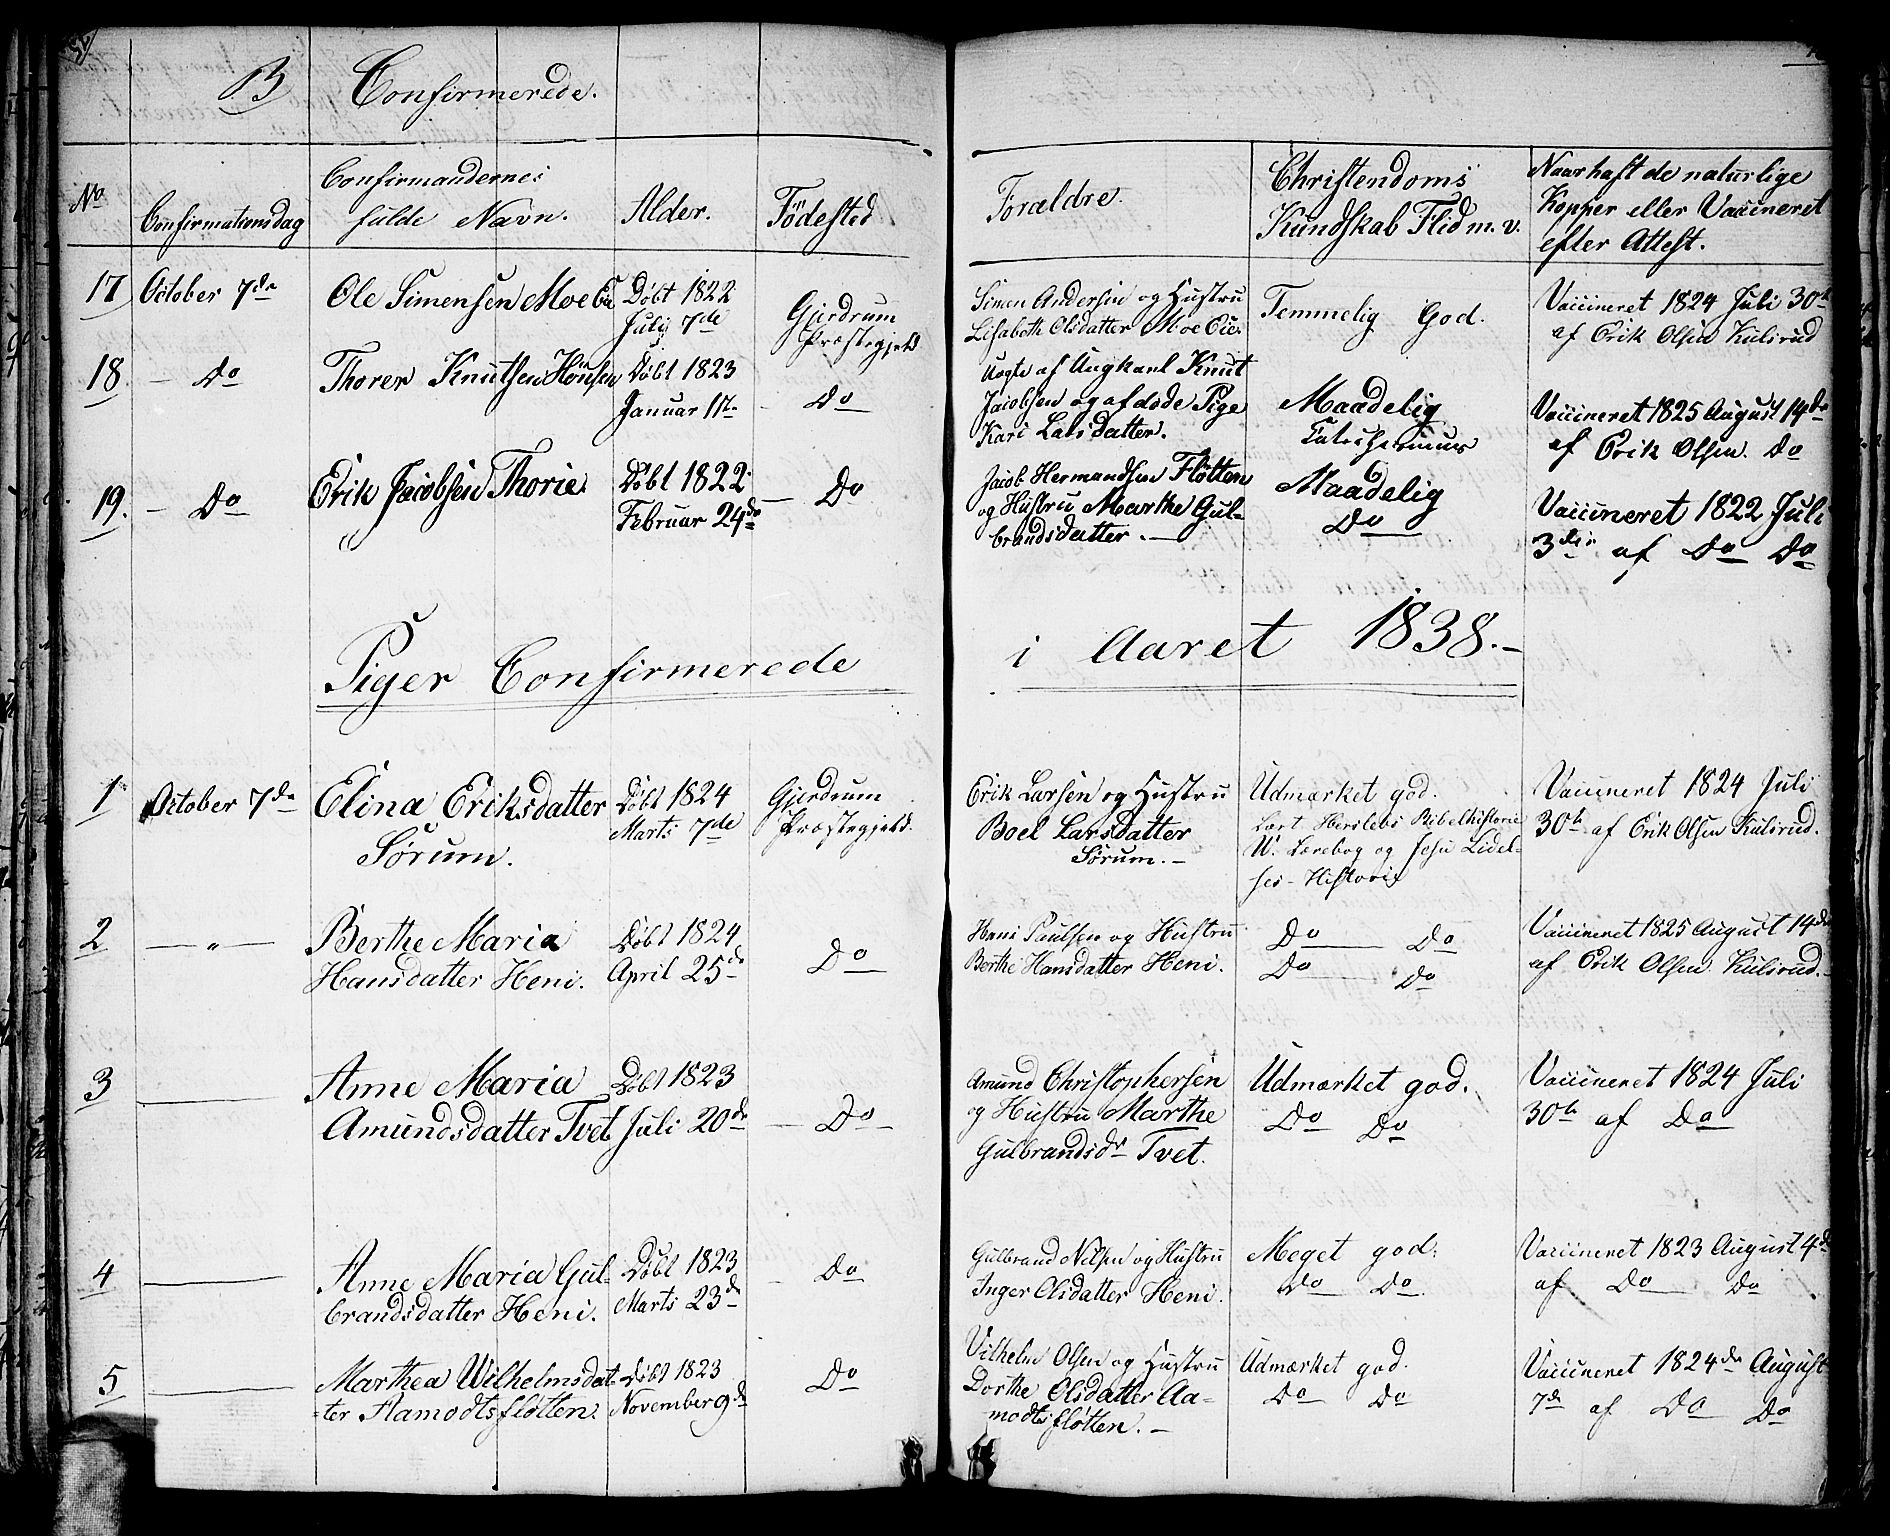 B Confirmerede.
No
Confirmationsdag
Confirmandernes
fulde Navn.
Alder.
Födested
Forældre.
Christendoms
Kundskab Flid m. v.
Naar haft de naturlige
Kopper eller Vaccineret
efter Attest.
17 October 7de Ole Simensen Moe Döbt 1822
Julij 7de
Gjerdrum
Præstegjeld
Simen Andersen og Hustru
Lisabeth Olsdatter Moe Eie.
Temmelig God.
Vaccineret 1824 Juli 30te
af Erik Olsen Kulsrud
18. — Do Thorer Knutsen Hönsen Döbt 1823
Januar 11te — Do
Uægte af Ungkarl Knut
Jacobsen og afdöde Pige
Kari Larsdatter.
Maadelig
Vaccineret 1825 August 14de
af Erik Olsen. Do
19. — Do Erik Jacobsen Thorie. Döbt 1822.
Februar 24de — Do
Jacob Hermandsen Fløtten
og Hustru Marthe Gul-
brandsdatter. —
Maadelig
Do
Vaccineret 1822 Juli
3die af Do Do
Piger Confirmerede i Aaret 1838. —
1 October 7de Elina Eriksdatter
Sørum.
Döbt 1824
Marts 7de
Gjerdrum
Præstegjeld.
Erik Larsen og Hustru
Boel Larsdatter
Sørum. —
Udmærket god.
Lært Herslebs Bibelhistorie
U. Lærebog og Jesu Lidel-
ses-Historie
Vaccineret 1824 Juli
30te af Erik Olsen Kulsrud.
2 — „ — Berthe Maria
Hansdatter Heni.
Döbt 1824
April 25de
Do
Hans Paulsen og Hustru
Berthe Hansdatter Heni.
Do Do
Do Do
Vaccineret 1825 August 14de
af Erik Olsen Kulsrud.
3 — Anne Maria
Amundsdatter Tvet
Döbt 1823
Juli 20de — Do —
Amund Christophersen
og Hustru Marthe
Gulbrandsdr Tvet.
Udmærket god.
Do Do
Vaccineret 1824 Juli
30te af Do
4 — Anne Maria Gul-
brandsdatter Heni.
Döbt 1823
Marts 23de
— Do
Gulbrand Nilsen og Hustru
Inger Olsdatter Heni.
Meget god.
Do Do
Vaccineret 1823 August 4de
af Do Do
5 — Marthea Wilhelmsdat-
-ter Aamodtsfløtten.
Döbt 1823
November 9de
Do
Vilhelm Olsen og Hustru
Dorthe Olsdatter Aa-
modtsfløtten. —
Udmærket god.
Do Do
Vaccineret 1824de August
7de af Do Do